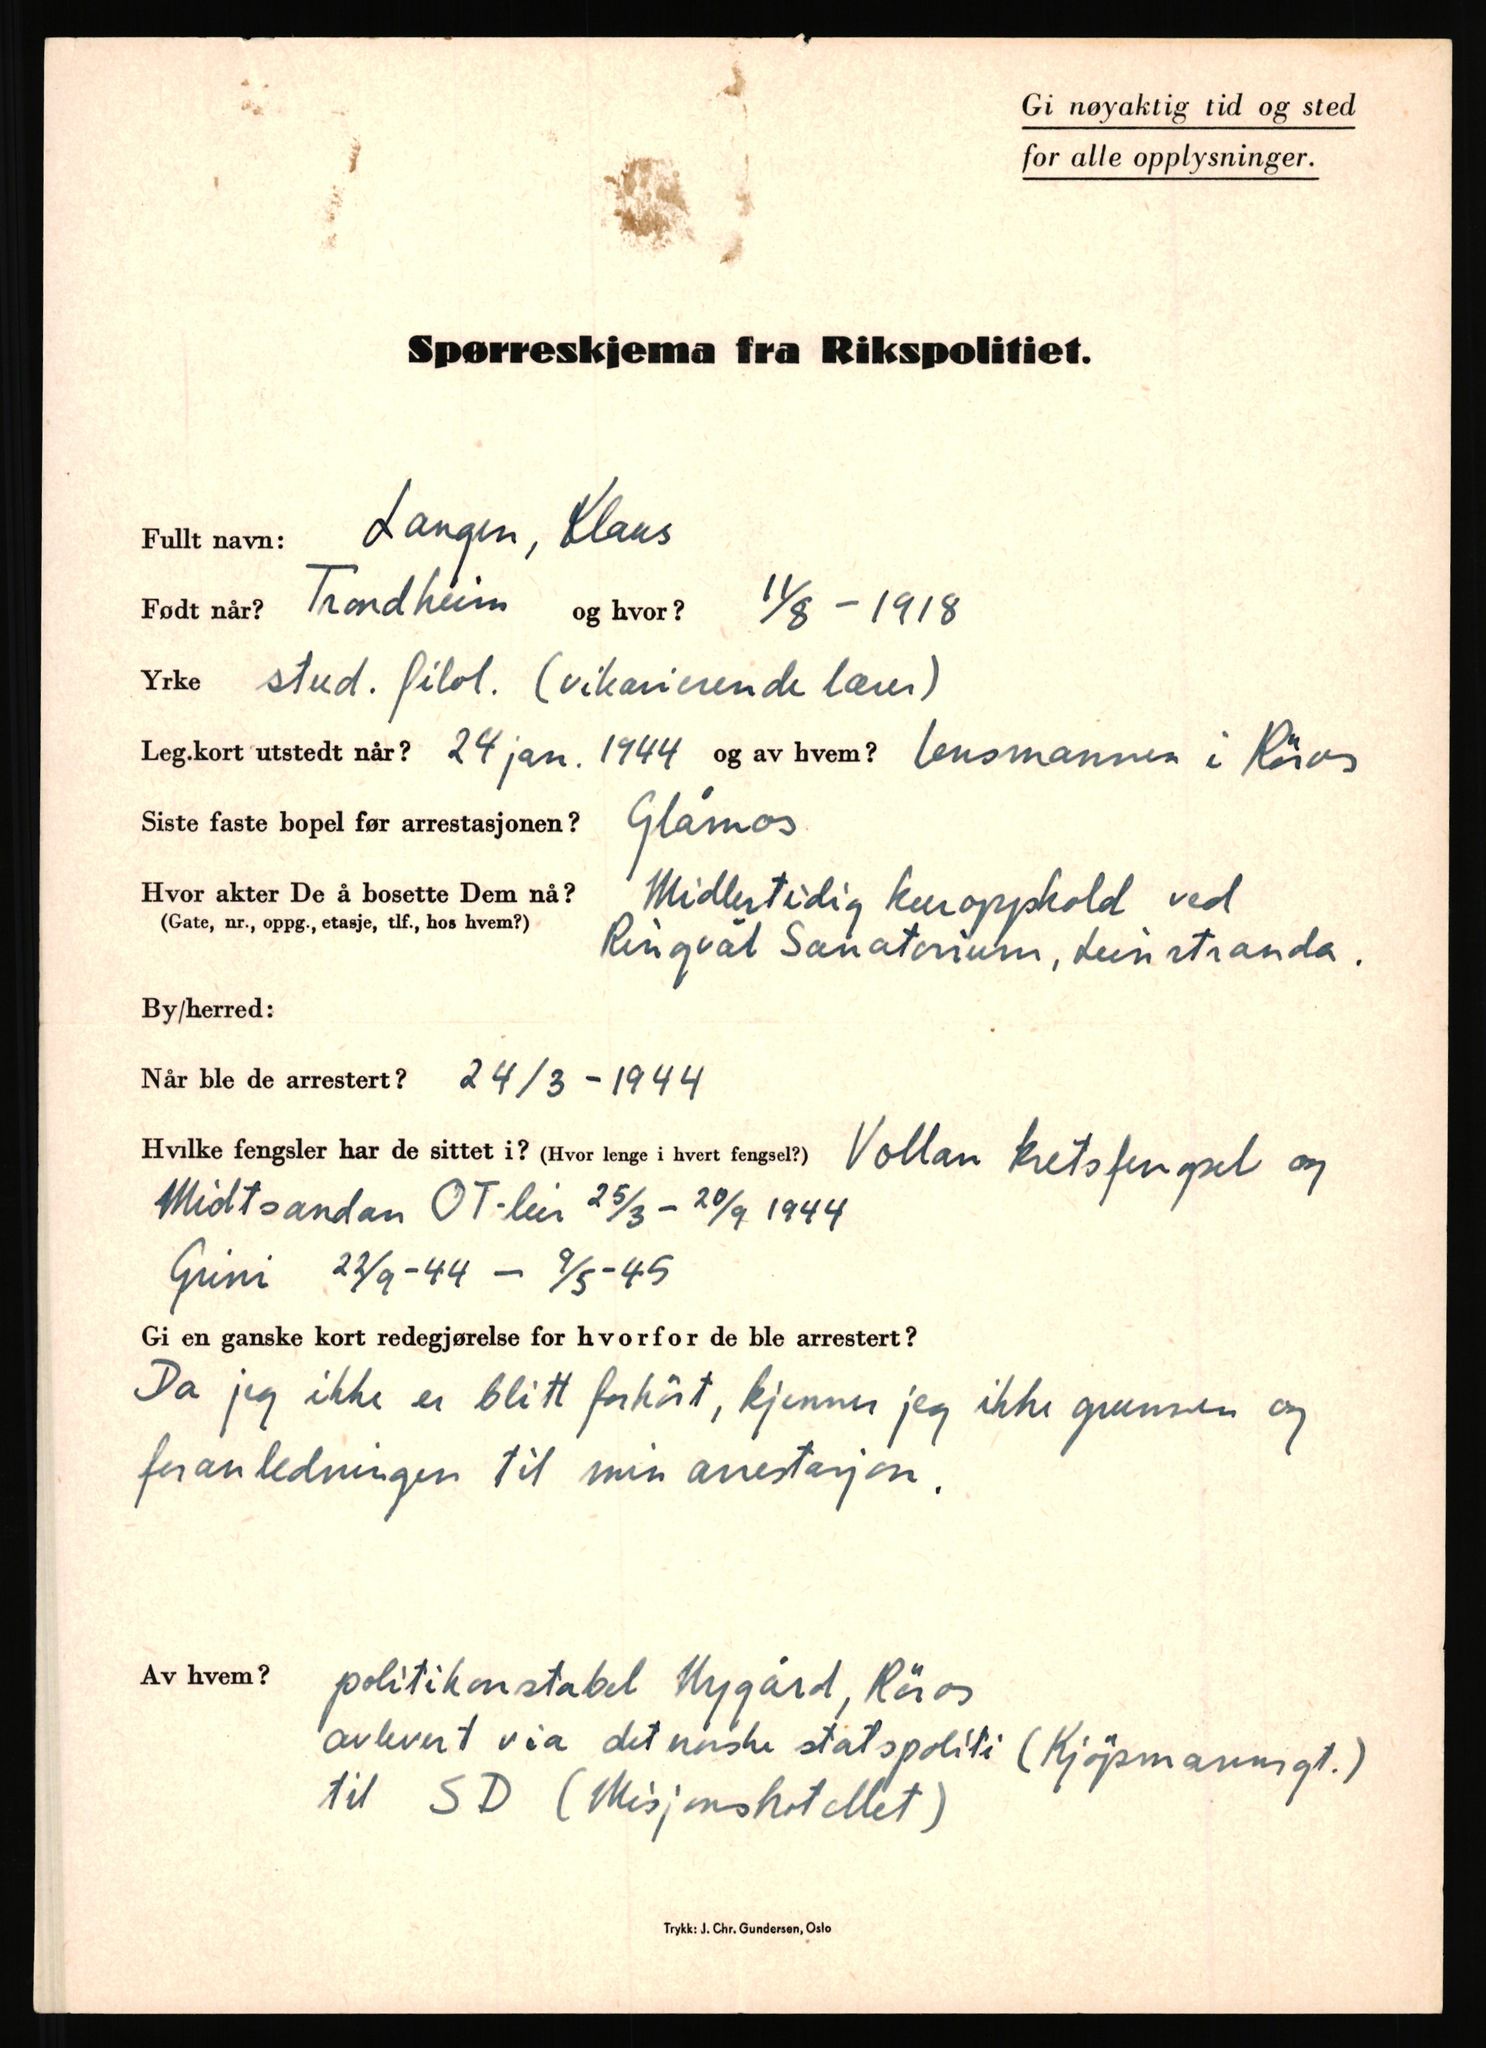 Gi nøyaktig tid og sted
for alle opplysninger.
Spørreskjema fra Rikspolitiet.
Fullt navn: Langen, Klaus
Født når? Trondheim og hvor? 11/8 - 1918
Yrke stud. filol. (vikarierende lærer)
Leg.kort utstedt når? 24 jan. 1944 og av hvem? lensmannen i Röros
Siste faste bopel før arrestasjonen? Glåmos
Hvor akter De å bosette Dem nå? Midlertidig kuropphold ved
(Gate, nr., oppg., etasje, tlf., hos hvem?) Ringvål Sanatorium, Leinstranda.
By/herred:
Når ble de arrestert? 24/3 - 1944
Hvilke fengsler har de sittet i? (Hvor lenge i hvert fengsel?) Vollan kretsfengsel og
Midtsandan OT-leir 25/3 - 20/9 1944
Grini 22/9-44 - 9/5-45
Gi en ganske kort redegjørelse for hvorfor de ble arrestert?
Da jeg ikke er blitt forhört, kjenner jeg ikke grunnen og
foranledningen til min arrestasjon.
Av hvem? politikonstabel Nygård, Röros
avlevert via det norske statspoliti (Kjöpmannsgt.)
til SD (Misjonshotellet)
Trykk: J. Chr. Gundersen, Oslo